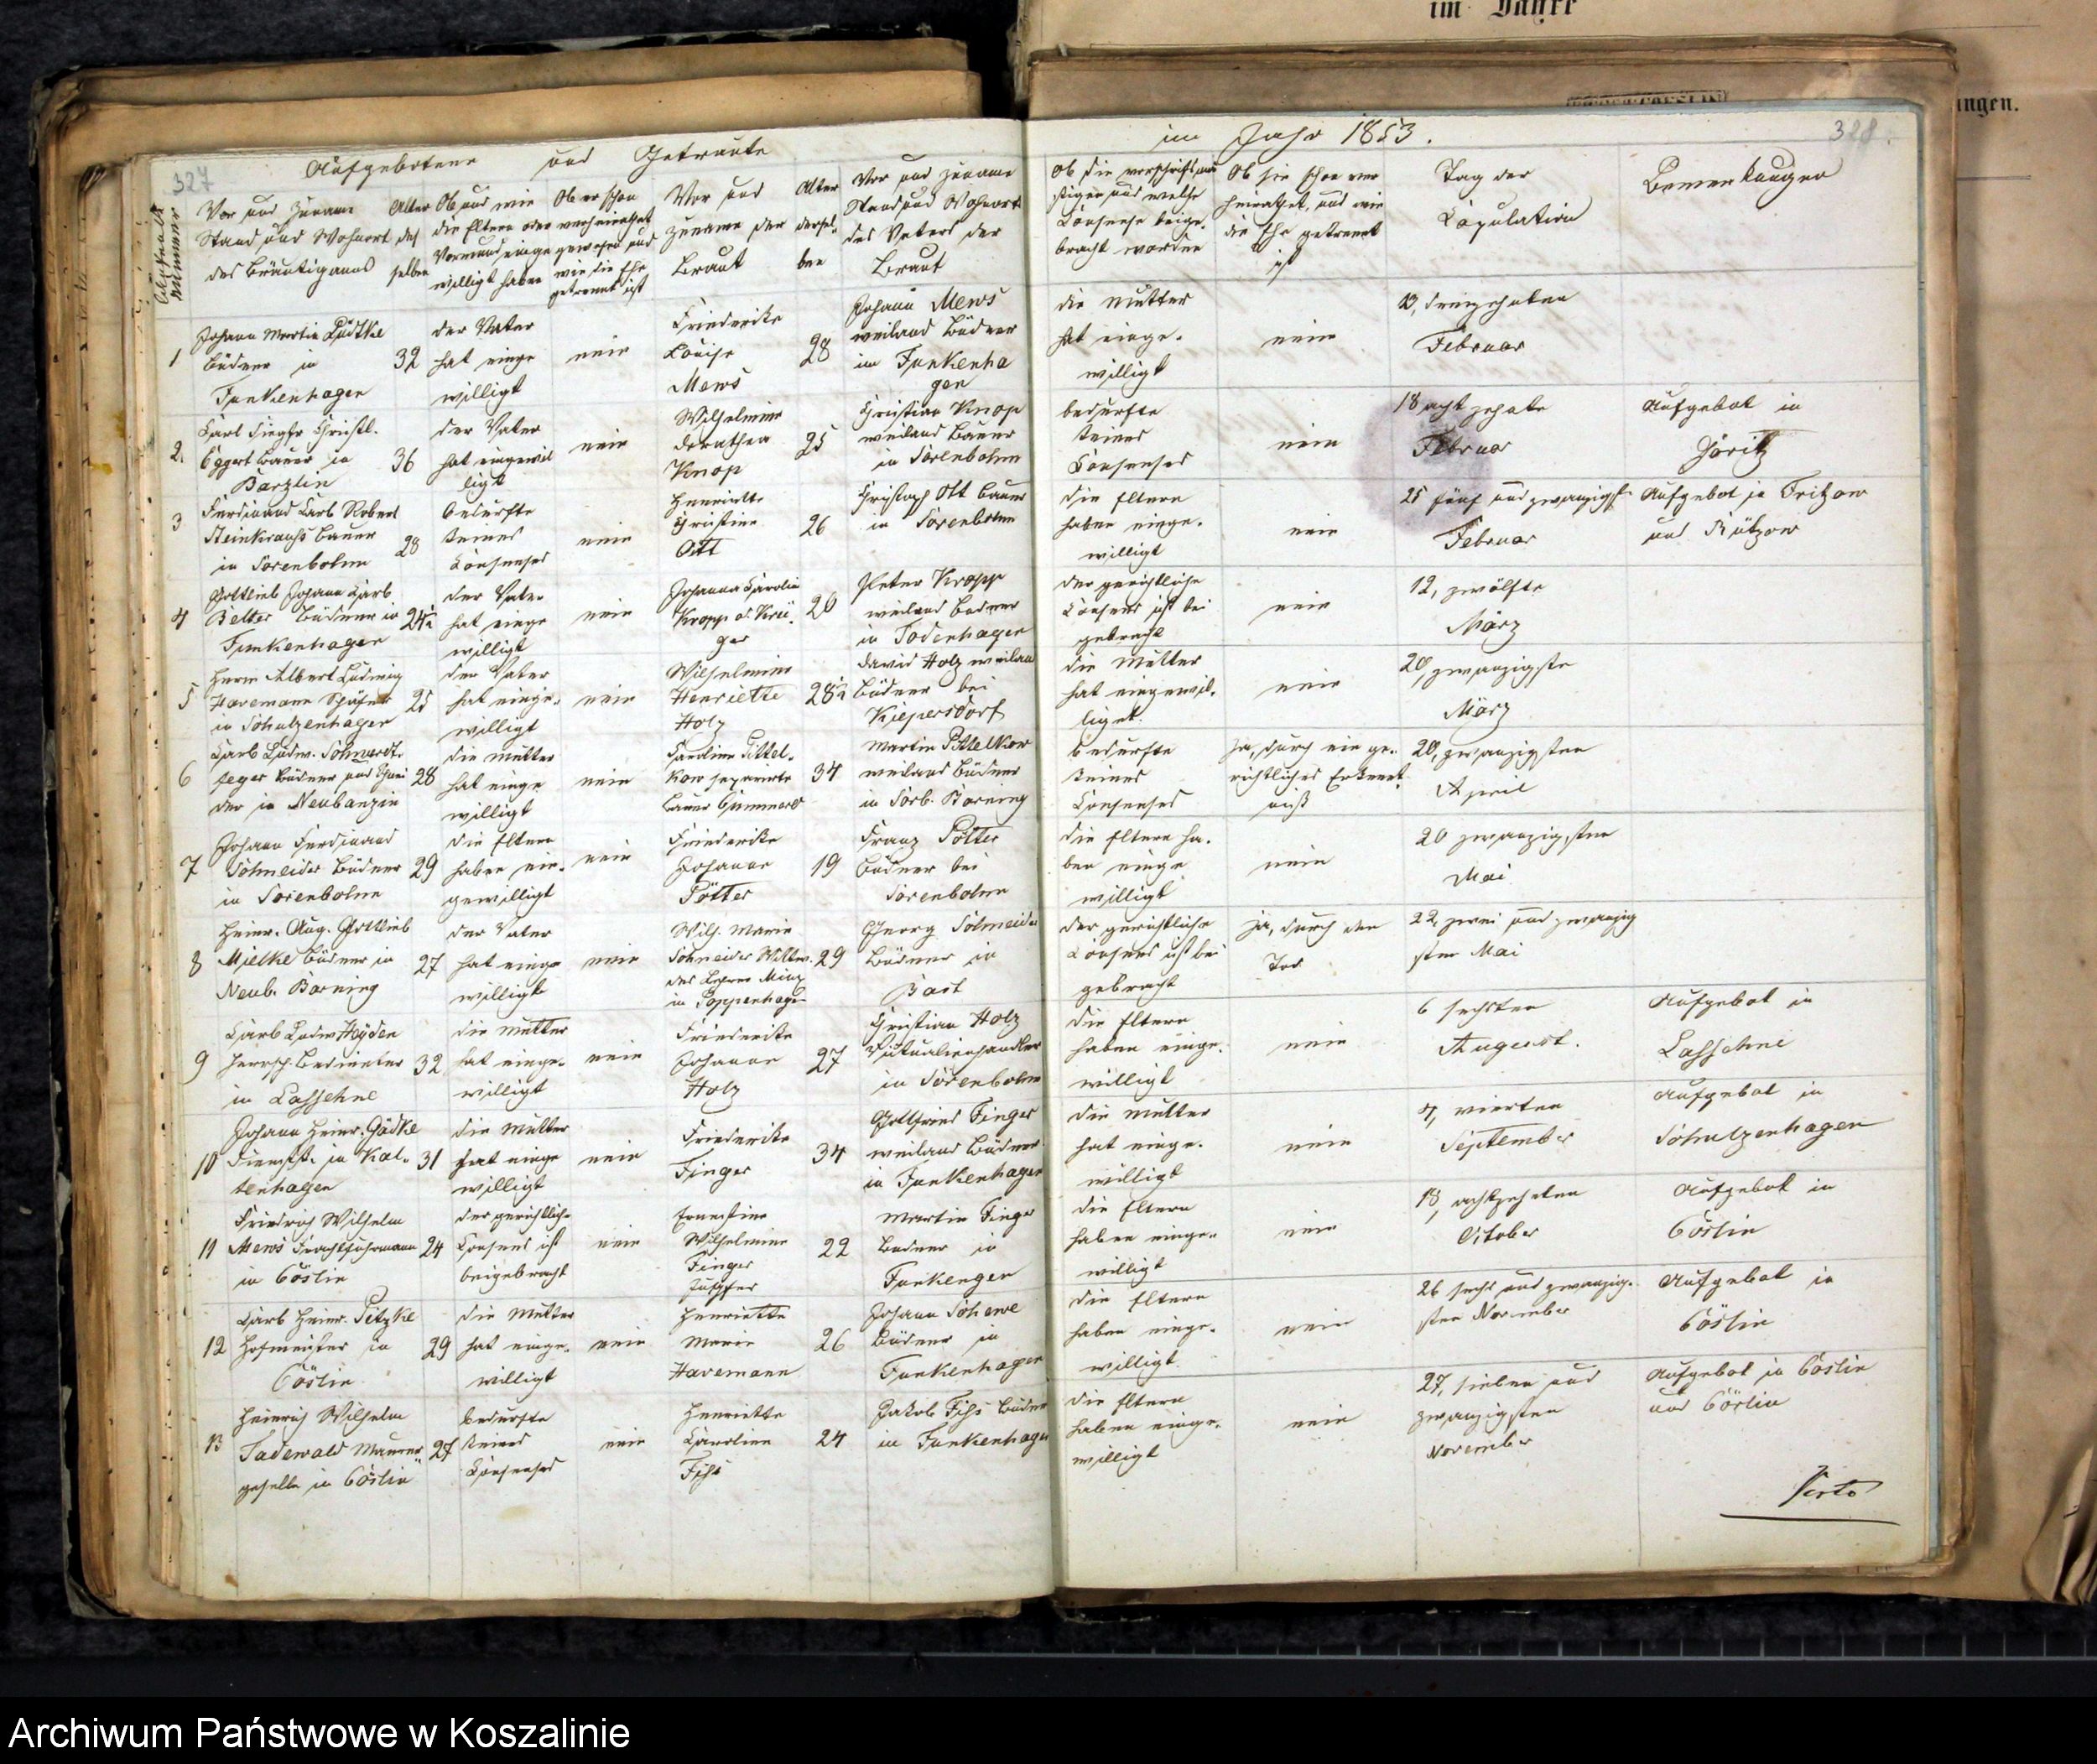 im Jahre
ungen.
327
Aufgebotene und Getraute
im Jahr 1853.
328.
Laufende Nummer
Vor und Zuname
Stand und Wohnort
des Bräutigams
Alter
des
selben
Ob und wie
die Eltern oder
Vormund einge
willigt haben
Ob er schon
verheirathet
gewesen und
wie die Ehe
getrennt ist
Vor und
Zuname der
Braut
Alter
dersel-
ben
Vor und Zuname
Stand und Wohnort
des Vaters der
Braut
Ob die vorschriftsmä
ßigen und welche
Consense beige-
bracht worden
Ob sie schon ver
heirathet, und wie
die Ehe getrennt
ist
Tag der
Copulation
Bemerkungen
1
Johann Martin Lüdtke
Büdner in
Funkenhagen
32
der Vater
hat einge
willigt
nein
Friederike
Louise
Mews
28
Johann Mews
weiland Büdner
in Funkenha
gen
die Mutter
hat einge-
willigt
nein
13, dreizehnten
Februar
2.
Carl Siegfr Christl.
Eggert Bauer in
Barzlin
36
der Vater
hat eingewil
ligt
nein
Wilhelmine
Dorathea
Knop
25
Christian Knop
weiland Bauer
in Sorenbohm
bedurfte
keines
Consenses
nein
18 achtzehnte
Februar
Aufgebot in
Jöritz
3
Ferdinand Carl Robert
Steinkrauss Bauer
in Sorenbohm
28
bedurfte
keines
Consenses
nein
Henriette
Christine
Ott
26
Christoph Ott Bauer
in Sorenbohm
die Eltern
haben einge-
willigt
nein
25 fünf und zwanzigst
Februar
Aufgebot in Fritzow
und Rützow
4
Gottlieb Johann Carl
Belter Büdner in
Funkenhagen
24½
der Vater
hat einge
willigt
nein
Johanna Carolin
Kropp od. Krü-
ger
20
Peter Kropp
weiland Büdner
in Todenhagen
der gerichtliche
Consens ist bei
gebracht
nein
12, zwölfte
März
5
Herm Albert Ludwig
Havemann Schäfer
in Schulzenhagen
25
der Vater
hat einge-
willigt
nein
Wilhelmine
Henriette
Holz
28½
David Holz weilan
Büdner bei
Kiepersdorf
die Mutter
hat eingewil-
liget.
nein
20, zwanzigste
März
6
Carl Ludw. Schwerdt
feger Büdner und Schnei
der in Neubanzin
28
die Mutter
hat einge
willigt
nein
Caroline Pittel-
kow separirte
Bauer Gummerd
34
Martin Pittelkow
weiland Büdner
in Sorb. Borning
bedurfte
keines
Consenses
Ja, durch ein ge-
richtliches Erkennt
niß
20, zwanzigsten
April
7
Johann Ferdinand
Schneider Büdner
in Sorenbohm
29
die Eltern
haben ein-
gewilligt
nein
Friederike
Johanne
Pötter
19
Franz Pötter
Büdner bei
Sorenbohm
die Eltern ha-
ben einge
willigt
nein
20 zwanzigsten
Mai
8
Heinr. Aug. Gottlieb
Mielke Büdner in
Neub. Borning
27
der Vater
hat einge
willigt
nein
Wilh. Marie
Schneider Wittw.
des Lehrer Minz
in Poppenhagen
29
Georg Schneider
Büdner in
Bast
der gerichtliche
Consens ist bei
gebracht
Ja, durch den
Tod
22, zwei und zwanzig
sten Mai
9
Carl Ludw Heyden
herrsch. Bedienter
in Lassehne
32
die Mutter
hat einge-
willigt
nein
Friederike
Johanne
Holz
27
Christian Holz
Victualienhändler
in Sorenbohm
die Eltern
haben einge-
willigt
nein
6 sechsten
August.
Aufgebot in
Lassehne
10
Johann Heinr. Gädke
Dienstk. in Kal-
tenhagen
31
die Mutter
hat einge
willigt
nein
Friederike
Finger
34
Gottfried Finger
weiland Büdner
in Funkenhagen
die Mutter
hat einge-
willigt
nein
4, vierten
September
Aufgebot in
Schulzenhagen
11
Friedrich Wilhelm
Mews Frachtfuhrmann
in Cöslin
24
der gerichtliche
Consens ist
beigebracht
nein
Ernestine
Wilhelmine
Finger
Jungfer
22
Martin Finger
Büdner in
Funkengen
die Eltern
haben einge-
willigt
nein
18, achtzehnten
October
Aufgebot in
Cöslin
12
Carl Heinr. Pitzke
Hofmeister in
Cöslin
29
die Mutter
hat einge-
willigt
nein
Henriette
Marie
Havemann
26
Johann Schewe
Büdner in
Funkenhagen
die Eltern
haben einge-
willigt.
nein
26 sechs und zwanzig-
sten November
Aufgebot in
Cöslin
13
Heinrich Wilhelm
Tadewald Maurer
geselle in Cöslin
27
bedurfte
keines
Consenses
nein
Henriette
Caroline
Fihs
24
Jakob Fihs Büdner
in Funkenhagen
die Eltern
haben einge-
willigt
nein
27, sieben und
zwanzigsten
November
Aufgebot in Cöslin
und Cörlin
Archiwum Państwowe w Koszalinie